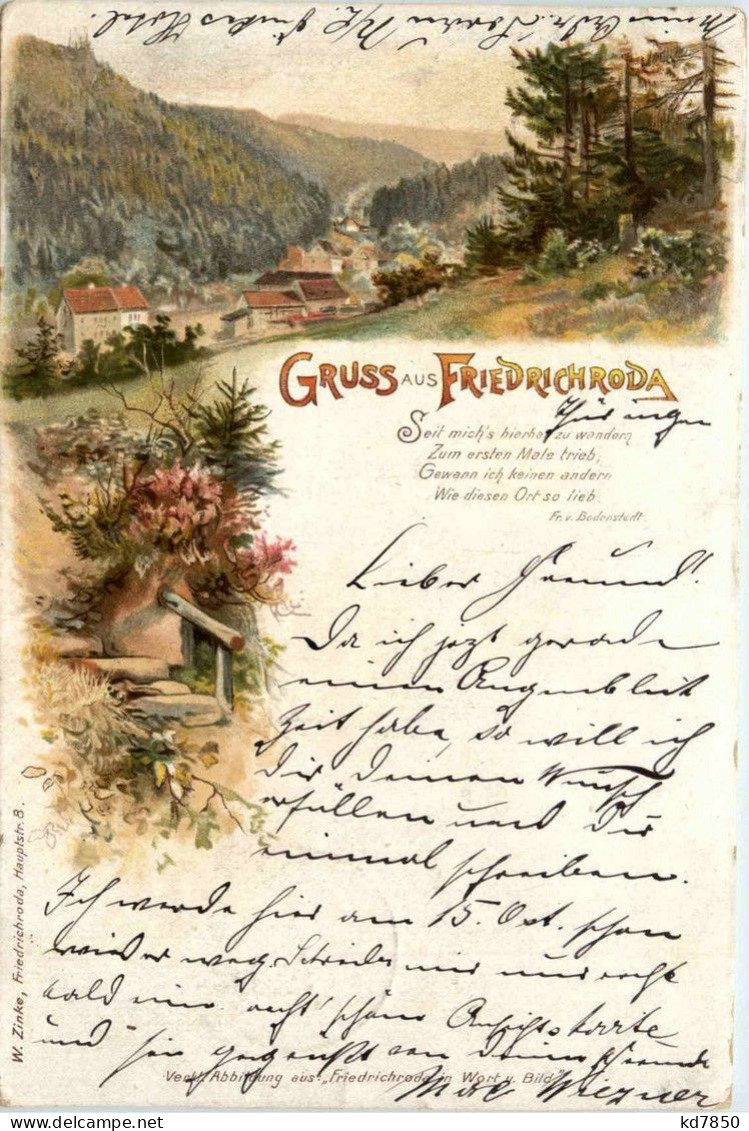 Meine Adr.
Hotel
GRUSS AUS FRIEDRICHRODA
Thüringen
Seit mich's hierher zu wandern
Zum ersten Male trieb,
Gewann ich keinen andern
Wie diesen Ort so lieb.
Fr. v. Bodenstedt.
Lieber Freund!
Da ich jezt gerade
einen Augenblick
Zeit habe, so will ich
dir deinen Wunsch
erfüllen und dir
einmal schreiben.
Ich werde hier am 15. Oct. schon
wieder weg. Schreibe mir nur recht
bald eine recht schöne Ansichtskarte
und sei gegrüßt von deinem Freunde
Verkl. Abbildung aus: „Friedrichroda in Wort u. Bild"
Max
W. Zinke, Friedrichroda, Hauptstr. 8.
kd7850